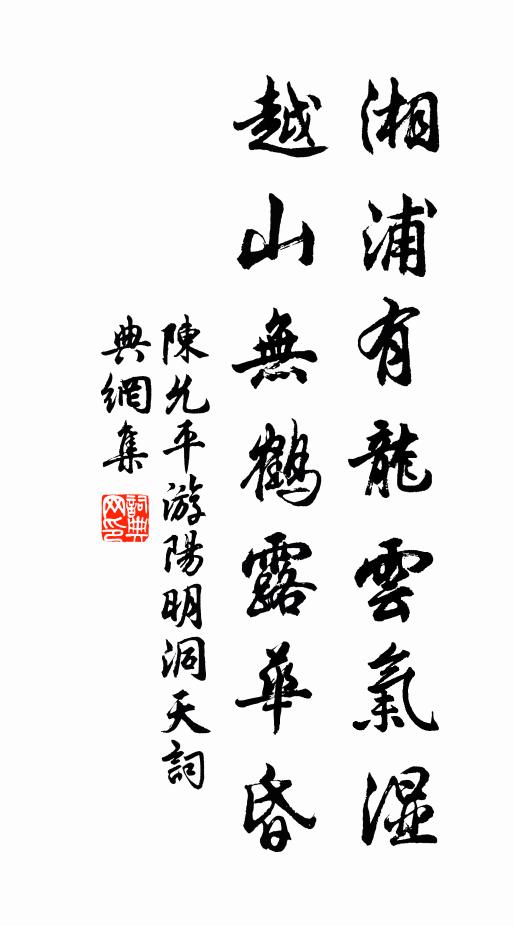 湘浦有龍雲氣湿
越山無鶴露華昏
陳允平游陽明洞天詞
典網集
詞典网印